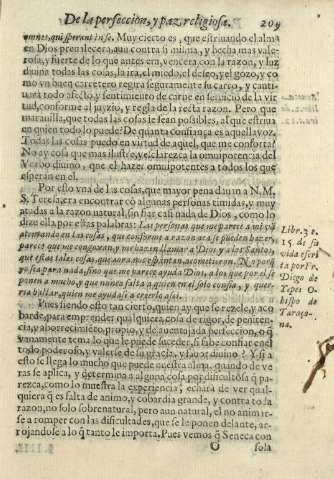 De la perfeccion, y paz religiosa. 209
mnes, qui sperant in se. Muy cierto es, que estriuando el alma
en Dios preualecera, aun contra si misma, y hecha mas vale-
rosa, y fuerte de lo que antes era, vencera con la razon, y luz
diuina todas las cosas, la ira, el miedo, el deseo, y el gozo, y co
mo vn buen carretero regira seguramente su carro, y cauti-
uara todo afecto, y sentimiento de carne en seruicio de la vir
tud, conforme al juyzio, y regla de la recta razon. Pero que
marauilla, que todas las cosas le sean possibles, al que estriua
en quien todo lo puede? De quanta confiança es aquella voz.
Todas las cosas puedo en virtud de aquel, que me conforta?
No ay cosa que mas ilustre, y esclarezca la omnipotencia del
Verbo diuino, que el hazer omnipotentes a todos los que
esperan en el.
Por esso vna de las cosas, que mayor pena daua a N. M.
S. Teresa, era encontrar có algunas personas timidas, y muy
atadas a la razon natural, sin fiar casi nada de Dios, como lo
dize ella por estas palabras: Las personas que veo
que conforme a razon acà se pueden hazer,
parece que me congoxan, y me hazen llamar a Dios, y a los Santos,
que estas tales cosas, que aora nos espantan, acometieron. No porq
yo sea para nada, sino que me parece ayuda Dios, a los que por el se
ponen a mucho, y que nunca falta a quien en el solo confia, y quer-
ria hallar, quien me ayudasse a creerlo assi.
Pues siendo esto tan cierto, quien ay que se rezele, y aco
barde, para emprender qualquiera cosa de rigor, de peniten-
cia, y aborrecimiento propio, y de auentajada perfeccion, o q
vanamente tema lo que le puede suceder, si sabe confiar en el
todo poderoso, y valerse de la gracia, y fauor diuino? Y si a
esto se llega lo mucho que puede nuestra alma, quando de ve
ras se aplica, y determina a alguna cosa por dificultosa q pa-
rezca, como lo muestra la experiencia; echarà de ver qual-
quiera q es falta de animo, y cobardia grande, y contra toda
razon, no solo sobrenatural, pero aun natural, el no animar-
se a romper con las dificultades, que se le ponen delante, ar-
rojandose a lo q tanto le importa. Pues vemos q Seneca con
O sola
Libr. 3. c.
15. de su
vida escri
ta por Fr.
Diego de
Yepes O-
bispo de
Taraço-
na.